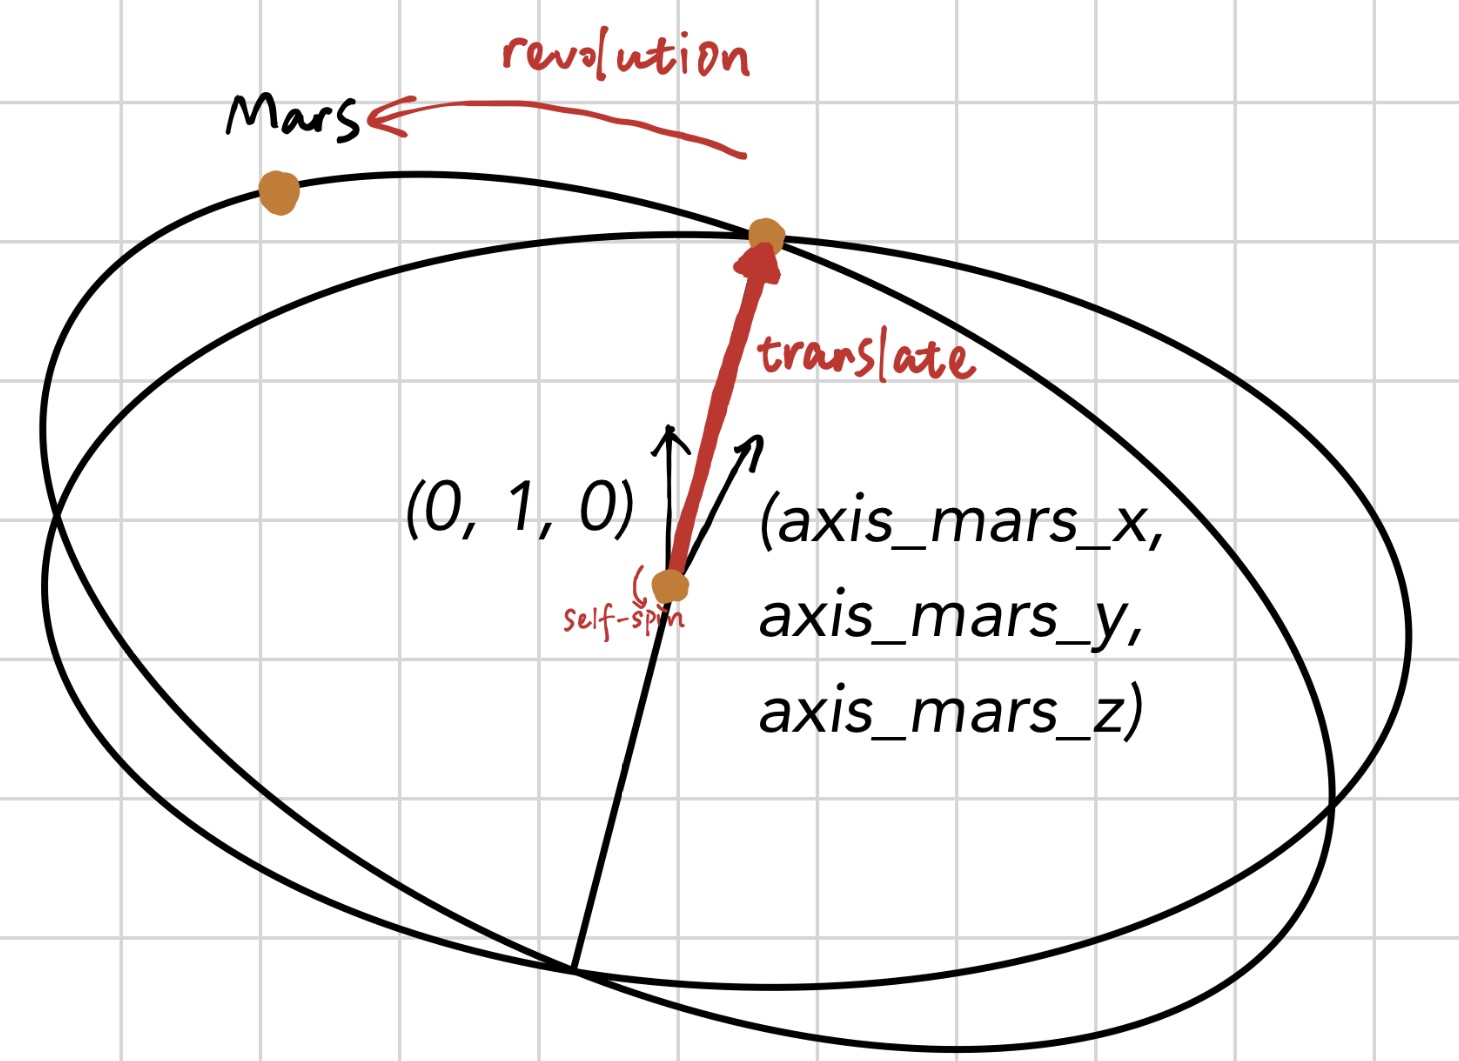 revolution
Mars
translate
(0, 1, 0)
(axis_mars_x,
axis_mars_y,
axis_mars_z)
self-spin